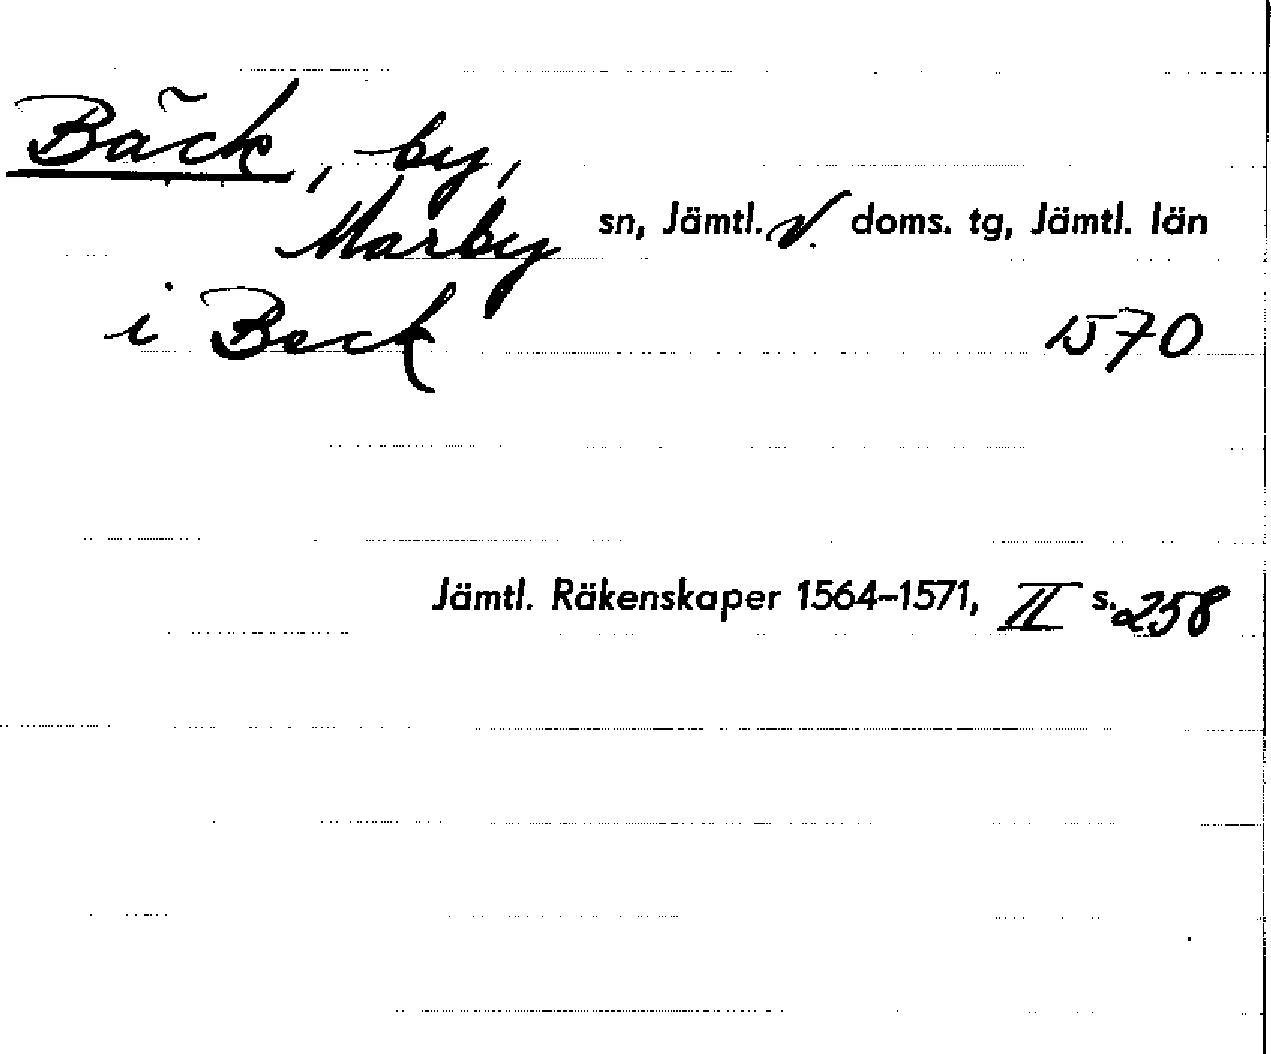 Bäck, by,
Marby sn, Jämtl. v. doms. tg, Jämtl. län
i Beck 1570
Jämtl. Räkenskaper 1564–1571, II s. 258